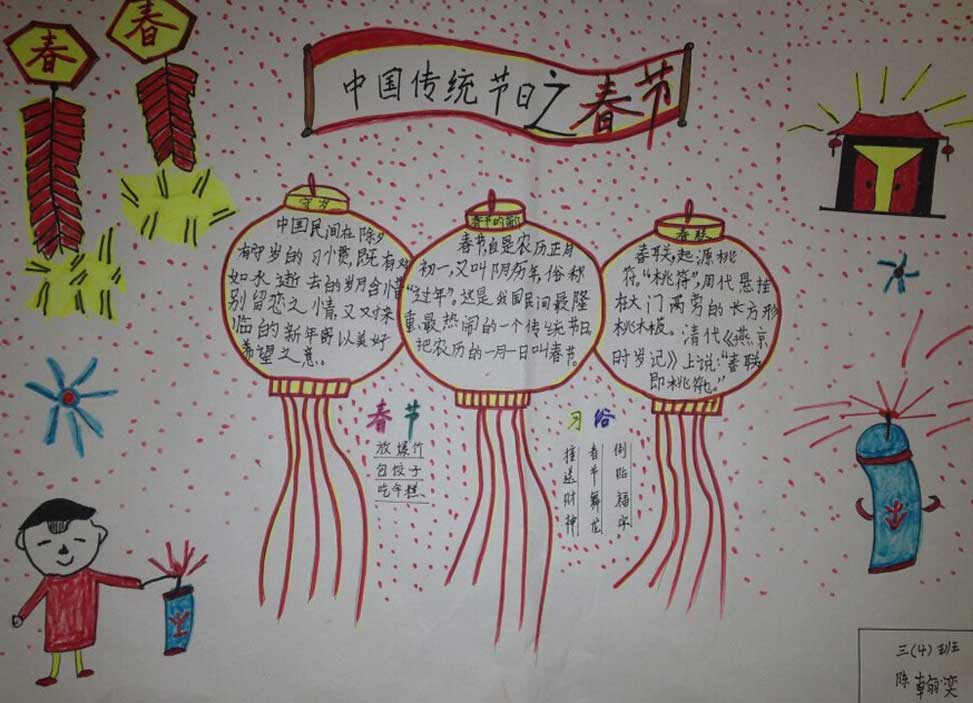 春
春
中国传统节日之春节
守岁
中国民间在除夕
有守岁的习惯,既有对
如水逝去的岁月含惜
别留恋之情,又对来
临的新年寄以美好
希望之意。
春节的
春节,自是农历正月
初一,又叫阴历年,俗称
“过年”。这是我国民间最隆
重最热闹的一个传统节日
把农历的一月一日叫春节。
春联
春联,起源桃
符。“桃符”,周代悬挂
在大门两旁的长方形
桃木板。清代《燕京
时岁记》上说:“春联
即桃符。”
春节
放爆竹
包饺子
吃年糕
习俗
倒贴福字
春节舞龙
送财神
三(4)班
陈翰奕